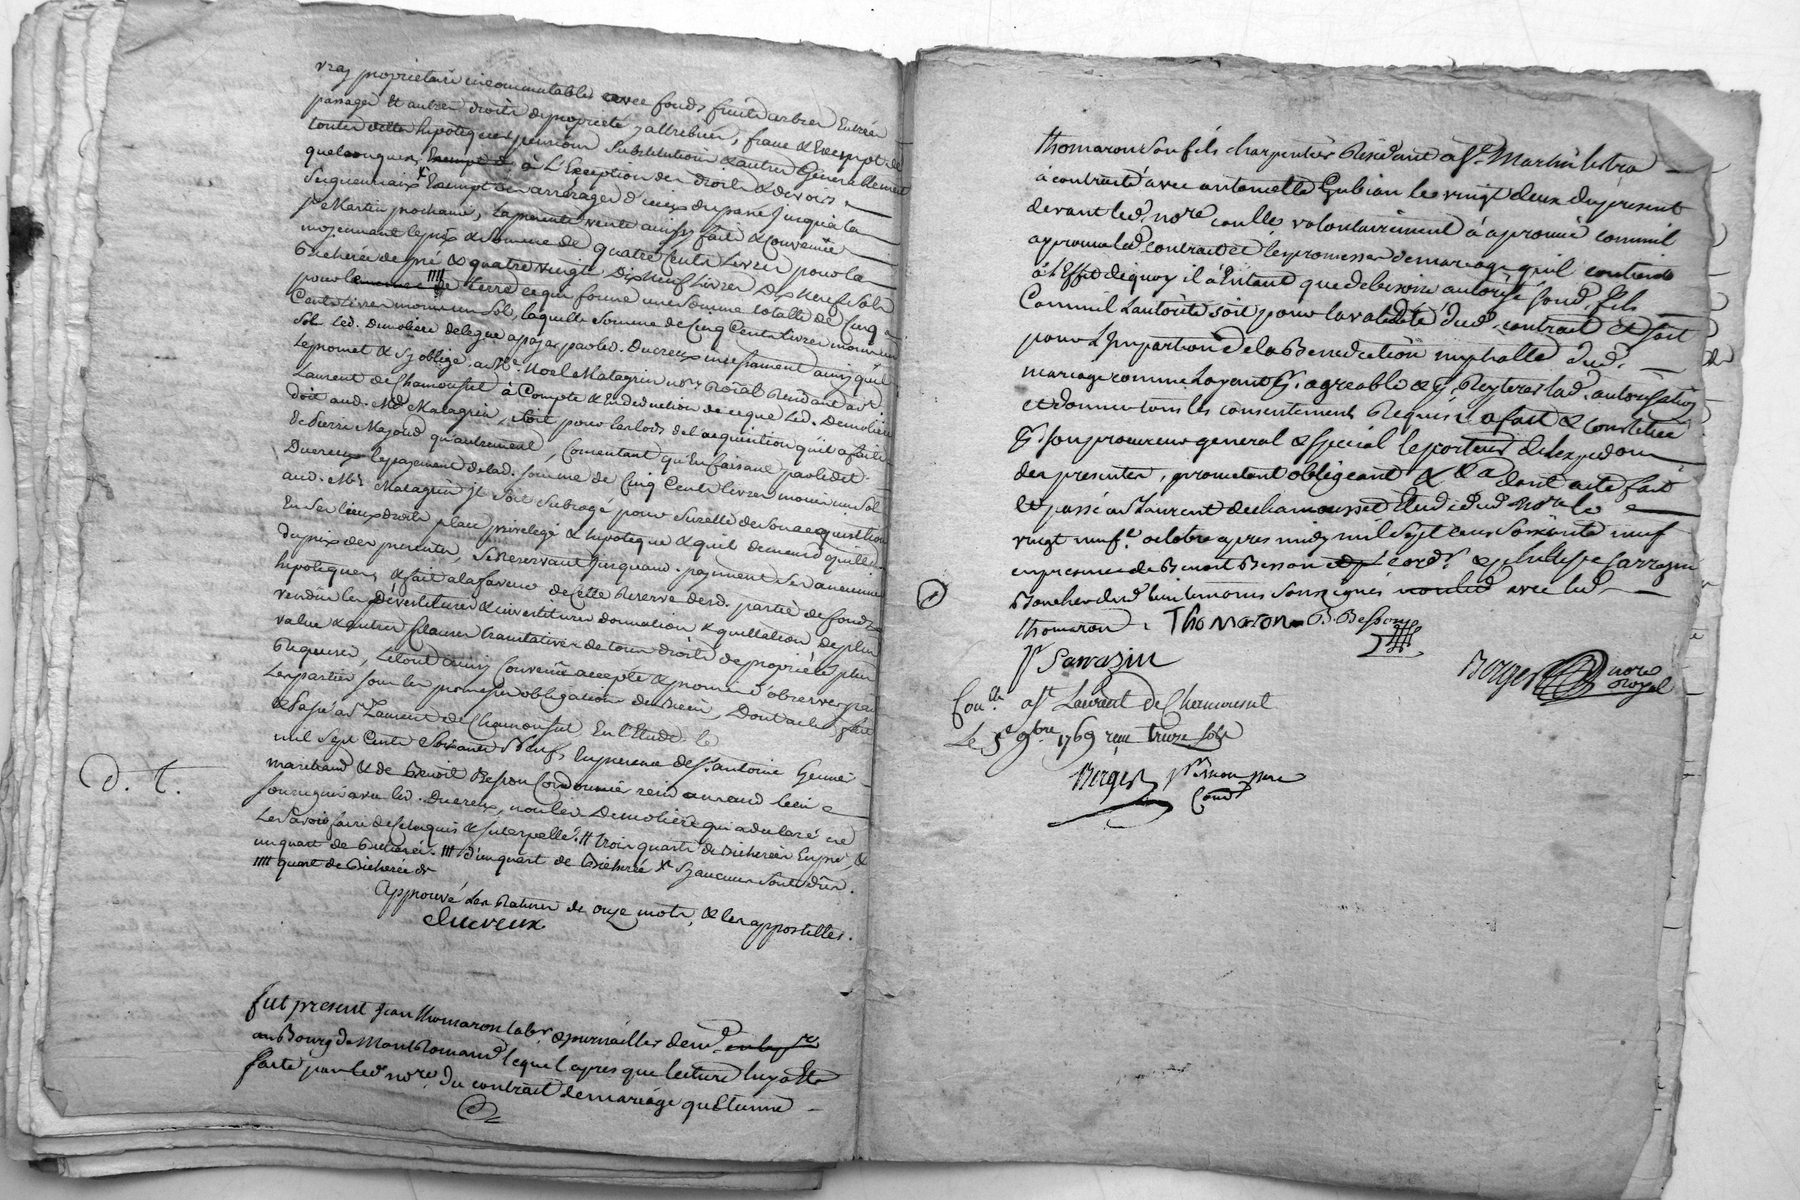 vray proprietaire incommutable avec fonds fruits arbres Entrées
passages & autres droits de proprieté y attribués, franc & Exempt de
toutes dettes hipoteques pensions Substitution & autres Generallement
quelconques, Exempt d à L'Exception des droits & devoirs
Seigneuriaux x Exempt des arrerages d'iceux du passé jusqu'a la
St Martin prochaine, la presente vente ainsy faite & Convenüe
moyennant le prix & Somme de quatre Cents Livres pour la
Bicherée de pré & quatre vingts Dix Neuf Livres Dix Neuf sols
pour le IIII terre ce qui forme une Somme totalle de Cinq
Cents livres moins un Sol, laquelle Somme de Cinq Cents livres moins un
Sol led. Demoliere delegue a payer par led. Ducreux incessament ainsy qu'il
le promet & S'y oblige au Sr Me Noel Matagrin nore Roïal Residant a St
Laurent de Chamousset à Compte & en deduction de ce que led. Demoliere
doit aud. Me Matagrin, soit pour les lods de l'acquisition qu'il a faite
de Pierre Mazard qu'autrement, Consentant qu'En faisant par ledit
Ducreux le payement de lad. Somme de Cinq Cents livres moins un Sol
aud. Me Matagrin il soit Subrogé pour Suretté de Son acquisition
En Ses lieux droits place privilege & hipoteque & qu'il demeure quitte
du prix des presentes, Se Reservant jusqu'aud. payement Ses anciennes
hipoteques, & fait a la faveur de Cette Reserve desd. partie de fonds
vendus les Dévestitures & investitures donnation & quittation de plus
value & autres Clauses translatives de tous droits de proprieté plus
Requises, Le tout ainsy Convenü accepté & promis d'observer par
Les parties sous les promesses obligation de Biens, Dont acte fait
& Passé a St Laurent de Chamousset En l'Etude le
mil Sept Cents Soixante Neuf, En presence de Sr. antoine
marchand & de Benoit Besson Cordonnier resid. aud. lieu
soussignés avec led. Ducreux, non led. Demoliere qui a declaré ne
le Savoir faire de Ce Enquis & Interpellé. # trois quarts de Bicherée En pré, &
un quart de Bicherée. III d'un quart de Bicherée x Sy aucuns Sont dûs.
IIII quart de Bicherée de
approuvé Les Ratures de onze mots, & les appostilles.
ducreux
D. T.
fut present Jean thomaron labr & journaillier demt en la pr
au Bourg de Montromand lequel apres que lecture luy a Ete
faite par led nore du contrat de mariage qu'Etienne
thomaron son fils charpentier Residant a St Martin lestra
à contracté avec antoinette Gubian le vingt deux du present
devant led. nore con lle volontairement à aprouvé comme il
aprouve led. contrat et les promesses de mariage qu'il contient
à l'Effet de quoy il à Entant que de besoin autorisé sond. fils
Comme il l'autorise soit pour la validité dud. contrat et soit
pour L'Impartion de la Benediction nuptialle dud.
mariage comme L'ayant pr. agreable & y Reyterer lad. autorisation
et donner tous les consentements Requis il a fait & constitué
pr son procureur general & special le porteur de l'expedon
des presentes, promettant obligeant & & a dont acte fait
et passé au St Laurent de chamousset Etude dud. nore le
vingt neufe. octobre apres midy mil sept cens soixante neuf
en presence de Benoit Besson cordr. & philippe sarrazin
Boucher dud lieu temoins soussignés avec led.
thomaron. Thomaron B. Besson
P Sarrazin
Berger nore
royal
Conlé a St Laurent de Chamousset
Le 5e 9bre 1769 reçu treize sols
Berger